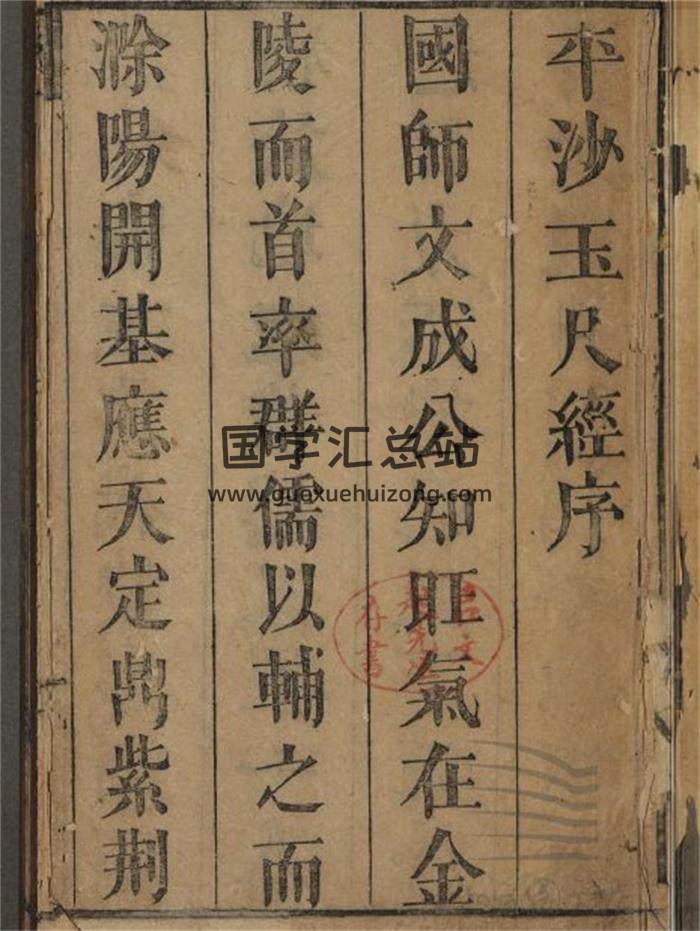 平沙玉尺經序
國師文成公知旺氣在金
陵而首率群儒以輔之而
滁陽開基應天定鼎紫荆
国学汇总站
www.guoxuehuizong.com